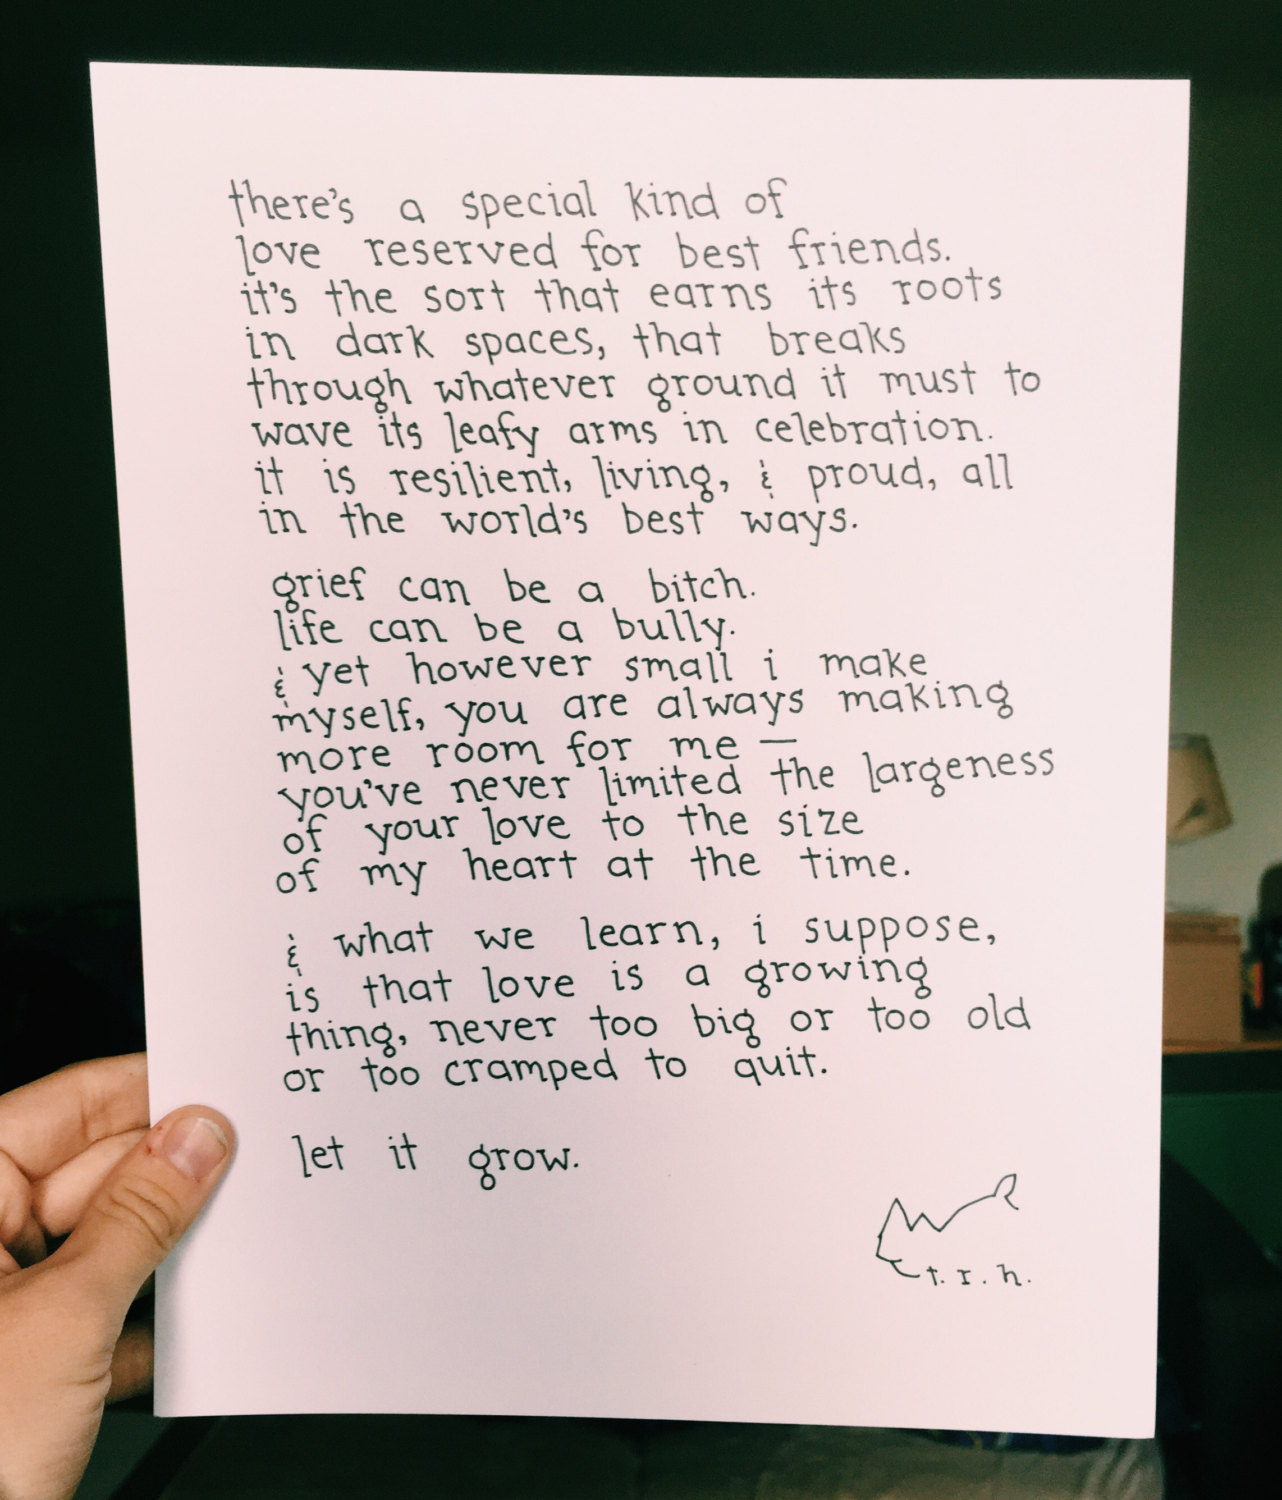 there's a special kind of
love reserved for best friends.
it's the sort that earns its roots
in dark spaces, that breaks
through whatever ground it must to
wave its leafy arms in celebration.
it is resilient, living, & proud, all
in the world's best ways.
grief can be a bitch.
life can be a bully.
& yet however small i make
myself, you are always making
more room for me —
you've never limited the largeness
of your love to the size
of my heart at the time.
& what we learn, i suppose,
is that love is a growing
thing, never too big or too old
or too cramped to quit.
let it grow.
t.r.h.